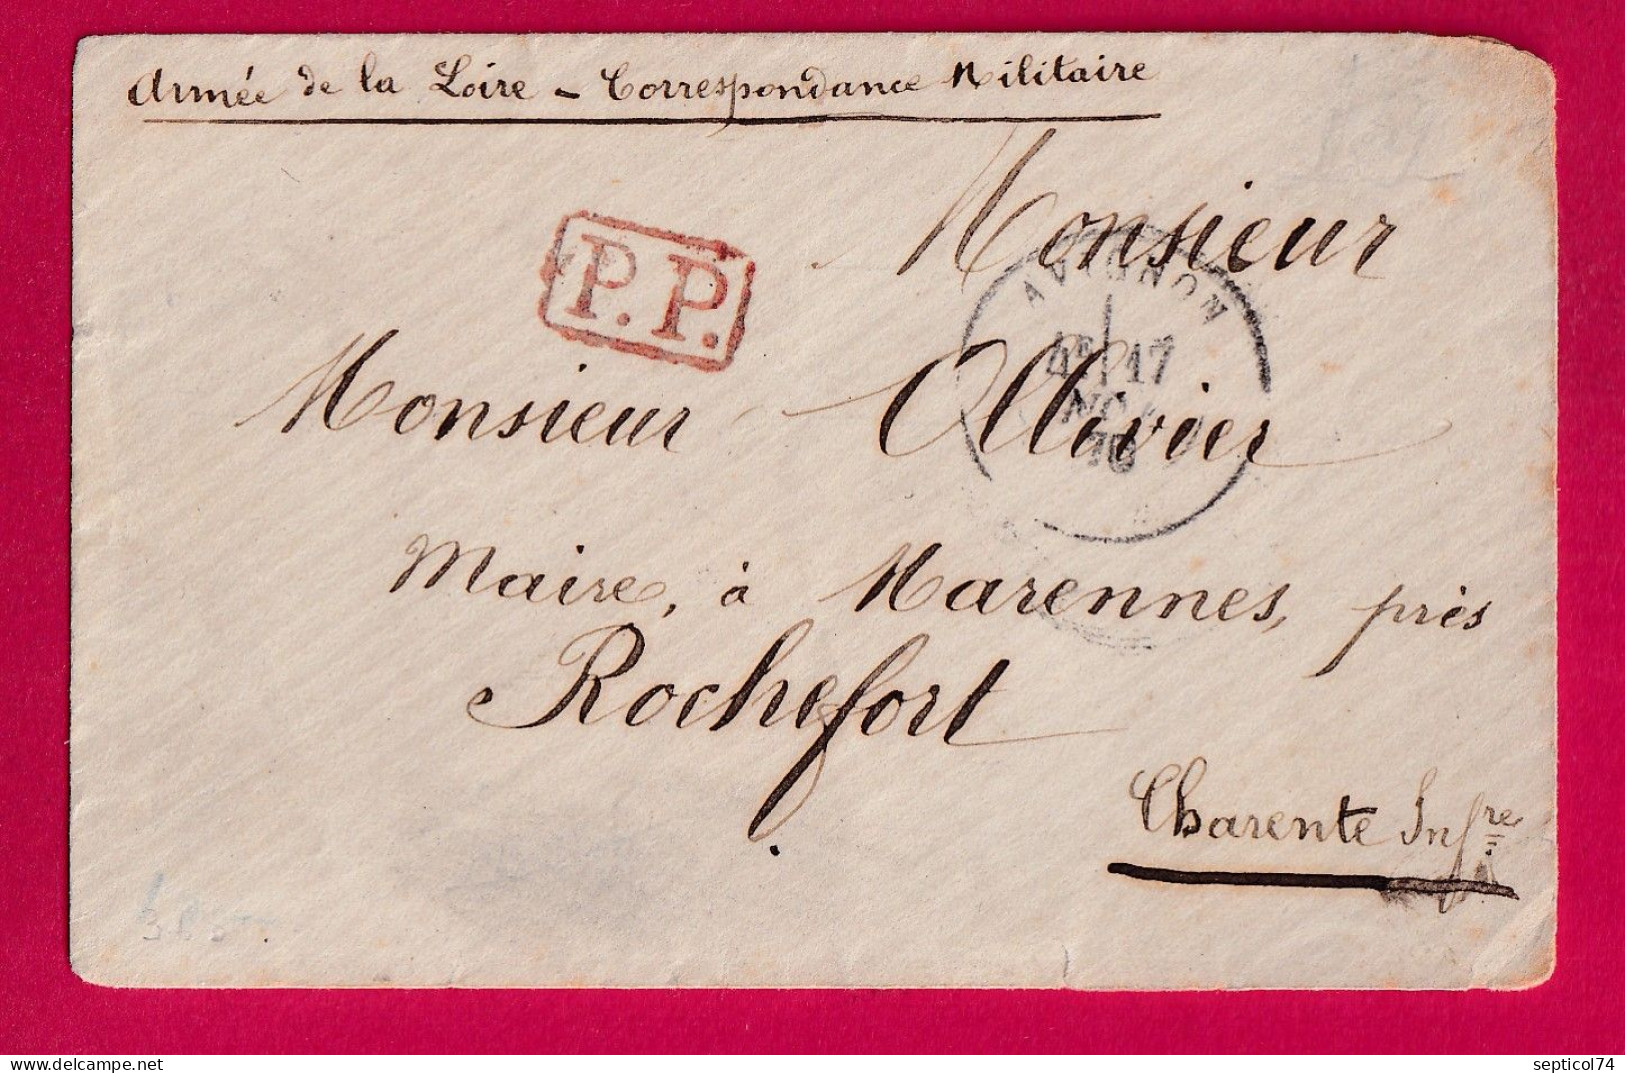 Armée de la Loire - Correspondance Militaire
Monsieur
P.P.
AVIGNON
4E 17
NOV
70
Monsieur Ollivier
Maire, à Marennes, près
Rochefort
Charente Infre
septicol74